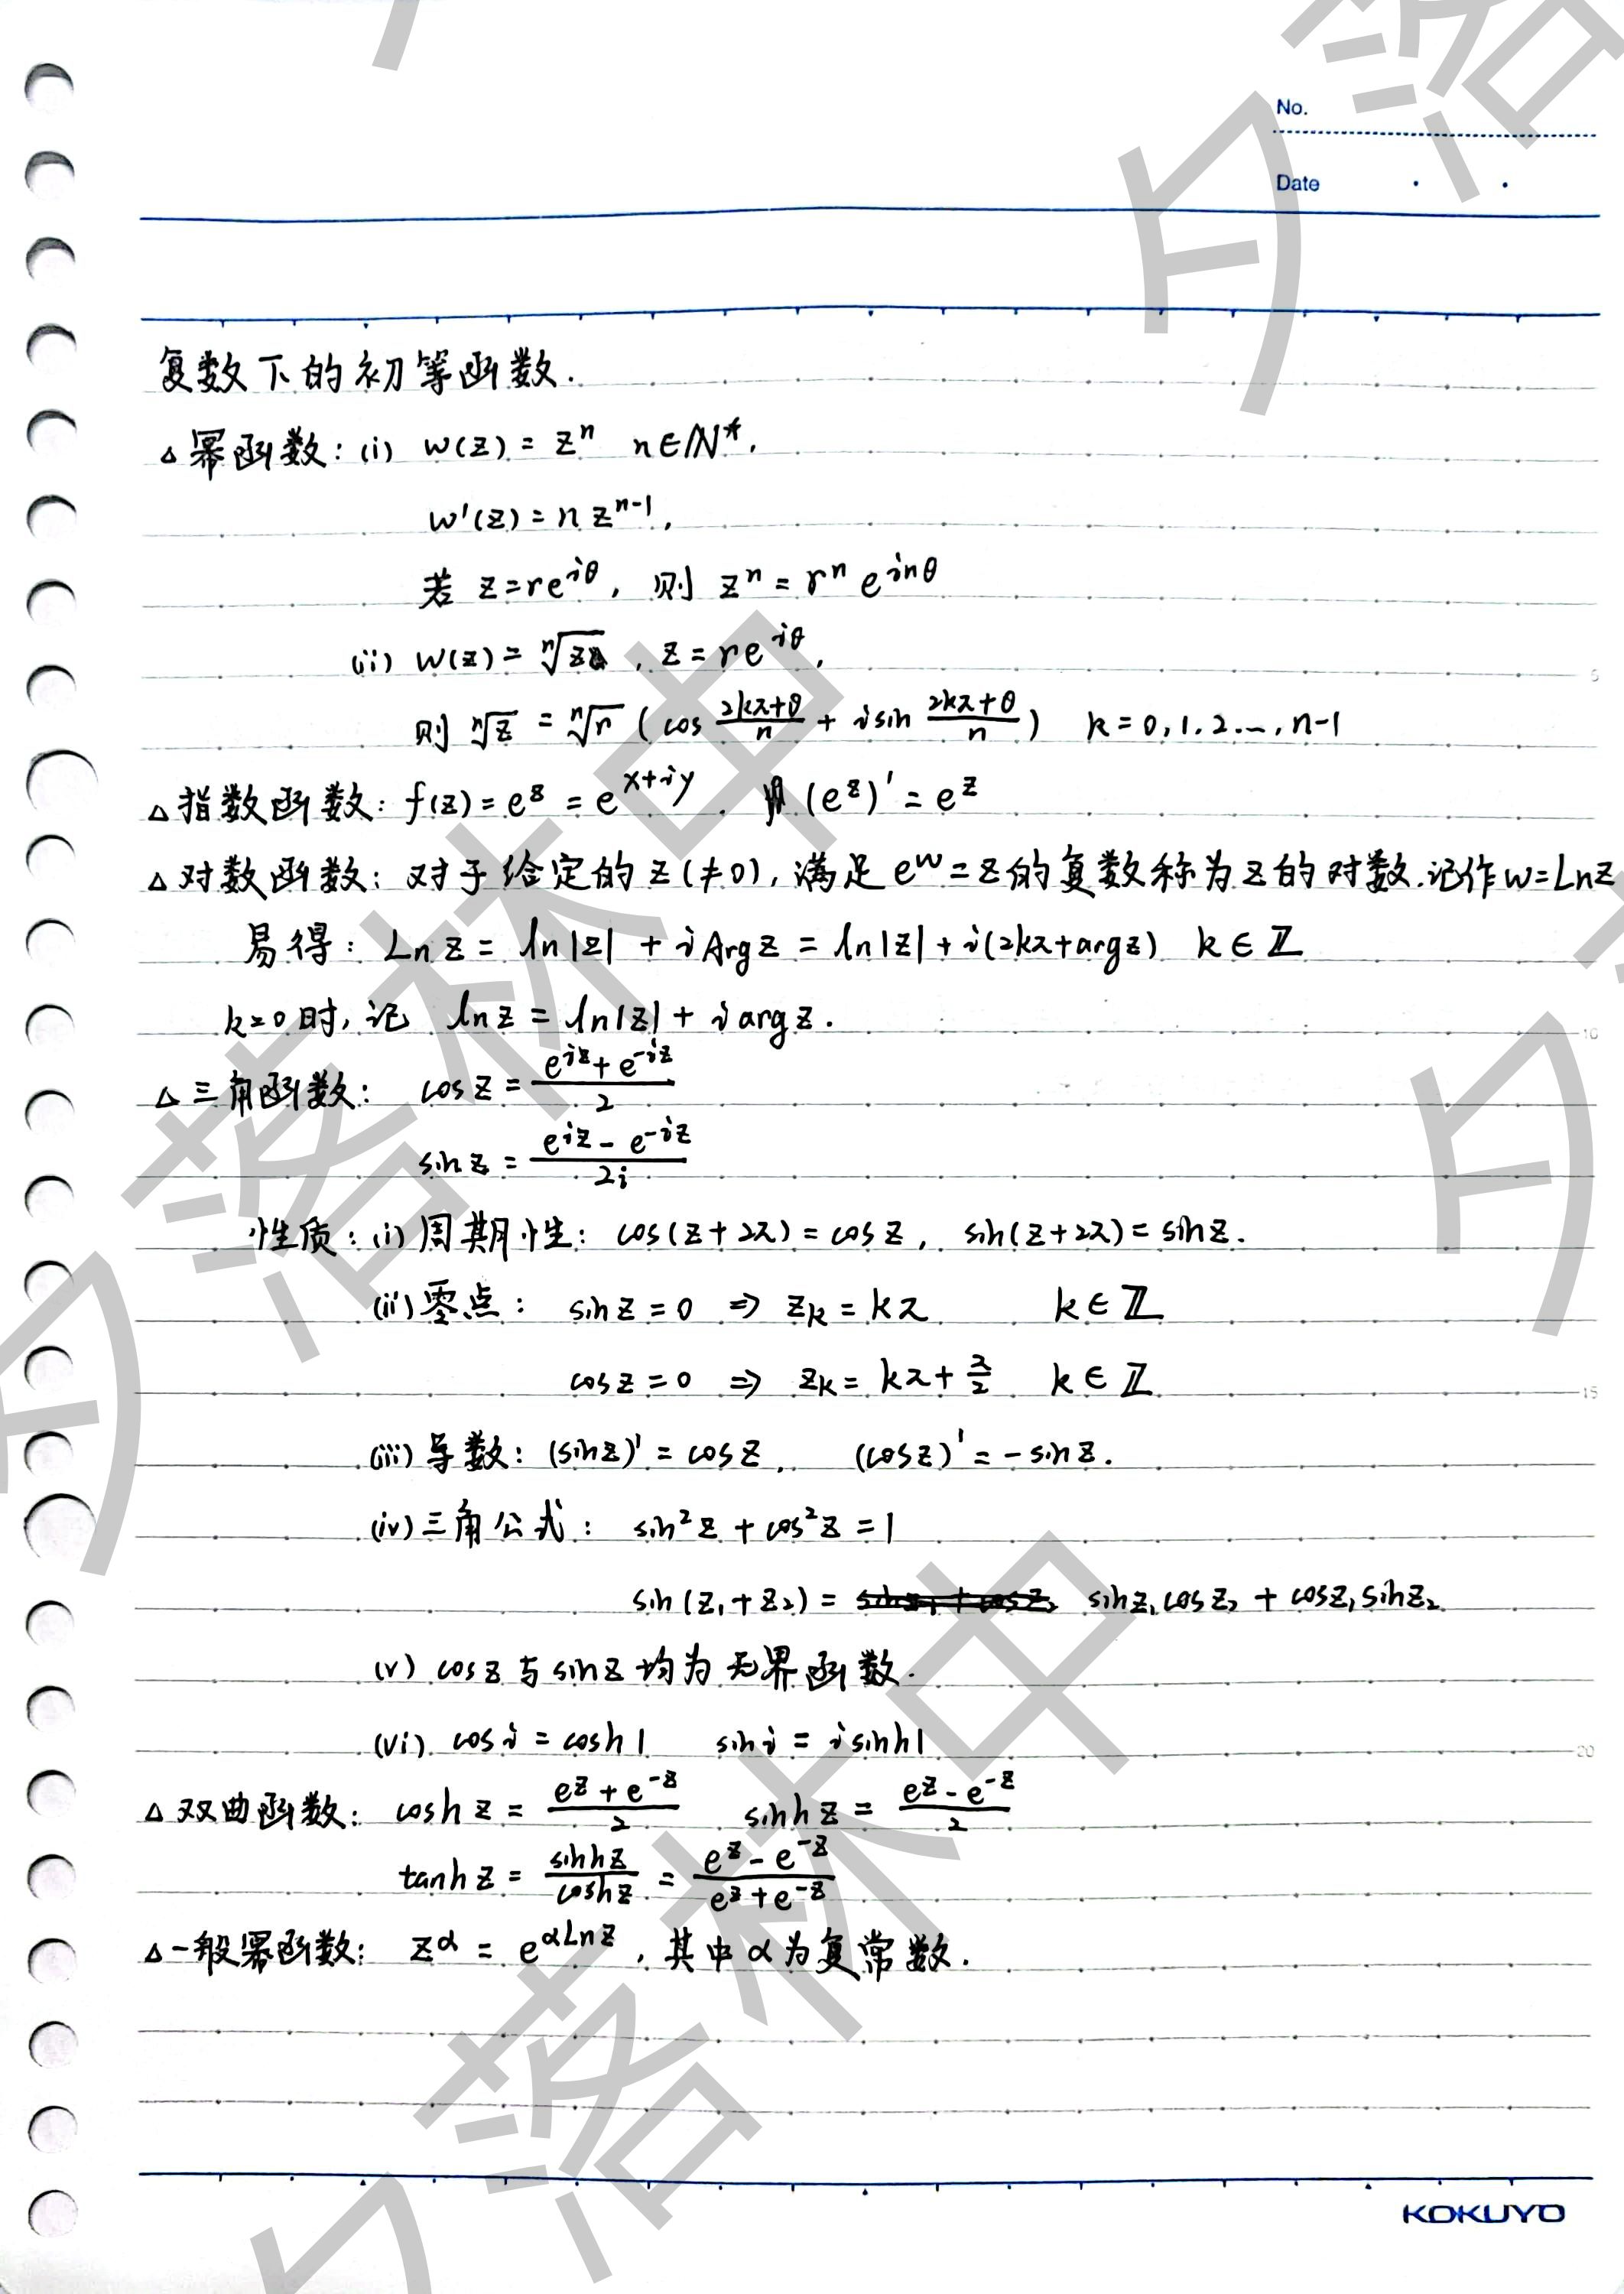 No.
Date
复数下的初等函数.
△幂函数: (i) w(z) = zⁿ n∈ℕ*,
w'(z) = n zⁿ⁻¹,
若 z = re^{iθ}, 则 zⁿ = rⁿ e^{inθ}
(ii) w(z) = ⁿ√z, z = re^{iθ},
则 ⁿ√z = ⁿ√r (cos (2kπ+θ)/n + i sin (2kπ+θ)/n) k = 0, 1, 2 …, n-1
△指数函数: f(z) = e^z = e^{x+iy}. (e^z)' = e^z
△对数函数: 对于给定的z(≠0), 满足e^w = z的复数称为z的对数.记作w=Lnz
易得: Ln z = ln|z| + i Arg z = ln|z| + i(2kπ+argz) k ∈ ℤ
k=0时, 记 ln z = ln|z| + i arg z.
△三角函数: cos z = (e^{iz} + e^{-iz})/2
sin z = (e^{iz} - e^{-iz})/2i
性质: (i) 周期性: cos(z+2π) = cos z, sin(z+2π) = sin z.
(ii) 零点: sin z = 0 ⇒ z_k = kπ k ∈ ℤ
cos z = 0 ⇒ z_k = kπ + π/2 k ∈ ℤ
(iii) 导数: (sin z)' = cos z, (cos z)' = - sin z.
(iv) 三角公式: sin² z + cos² z = 1
sin(z₁+z₂) = sin z₁ cos z₂ + cos z₁ sin z₂
(v) cos z 与 sin z 均为无界函数.
(vi) cos i = cosh 1 sin i = i sinh 1
△双曲函数: cosh z = (e^z + e^{-z})/2 sinh z = (e^z - e^{-z})/2
tanh z = sinh z/cosh z = (e^z - e^{-z})/(e^z + e^{-z})
△一般幂函数: z^α = e^{αLnz}, 其中α为复常数.
5
10
15
20
KOKUYO
夕落林中
夕落林中
夕落
夕